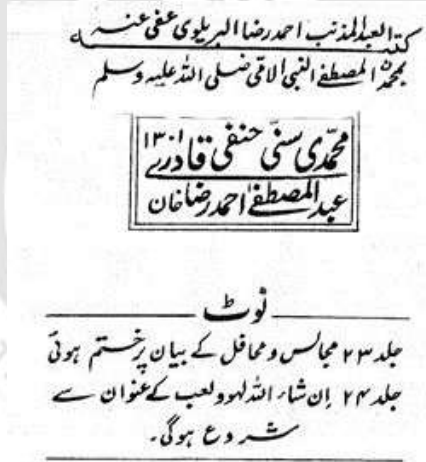 کتبہ العبد المذنب احمد رضا البریلوی عفی عنہ
بمحمدن المصطفی النبی الامّی صلی اللہ علیہ وسلم
محمّدی سنّی حنفی قادری ۱۳۰۱
عبد المصطفٰے احمد رضا خان
نوٹ
جلد ۲۳ مجالس و محافل کے بیان پر ختم ہوئی
جلد ۲۴ اِن شاء اللہ لہو و لعب کے عنوان سے
شروع ہوگی۔